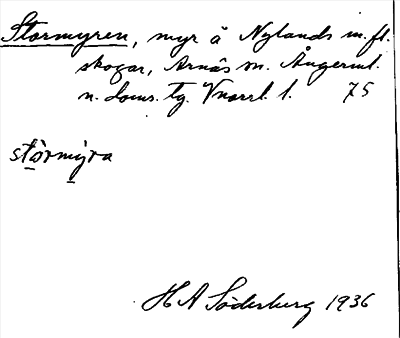 Stormyren, myr å Nylands m. fl.
skogar, Arnäs sn. Ångerml.
n. doms. tg. 75
störmýra
H A Söderberg 1936